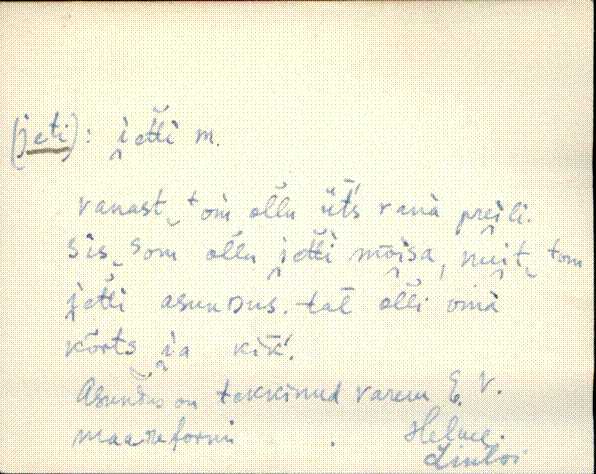 (jeti): i̯etti m.
vanast‿tom ollu üt's vana prei̯li.
sis‿som ollu i̯etti mõi̯sa, nui̯t‿tom
i̯etti asunDus. tal olli oma
kõrts i̯a kik.
Asundus on tekkinud varem E. V.
maareformi
Helmi